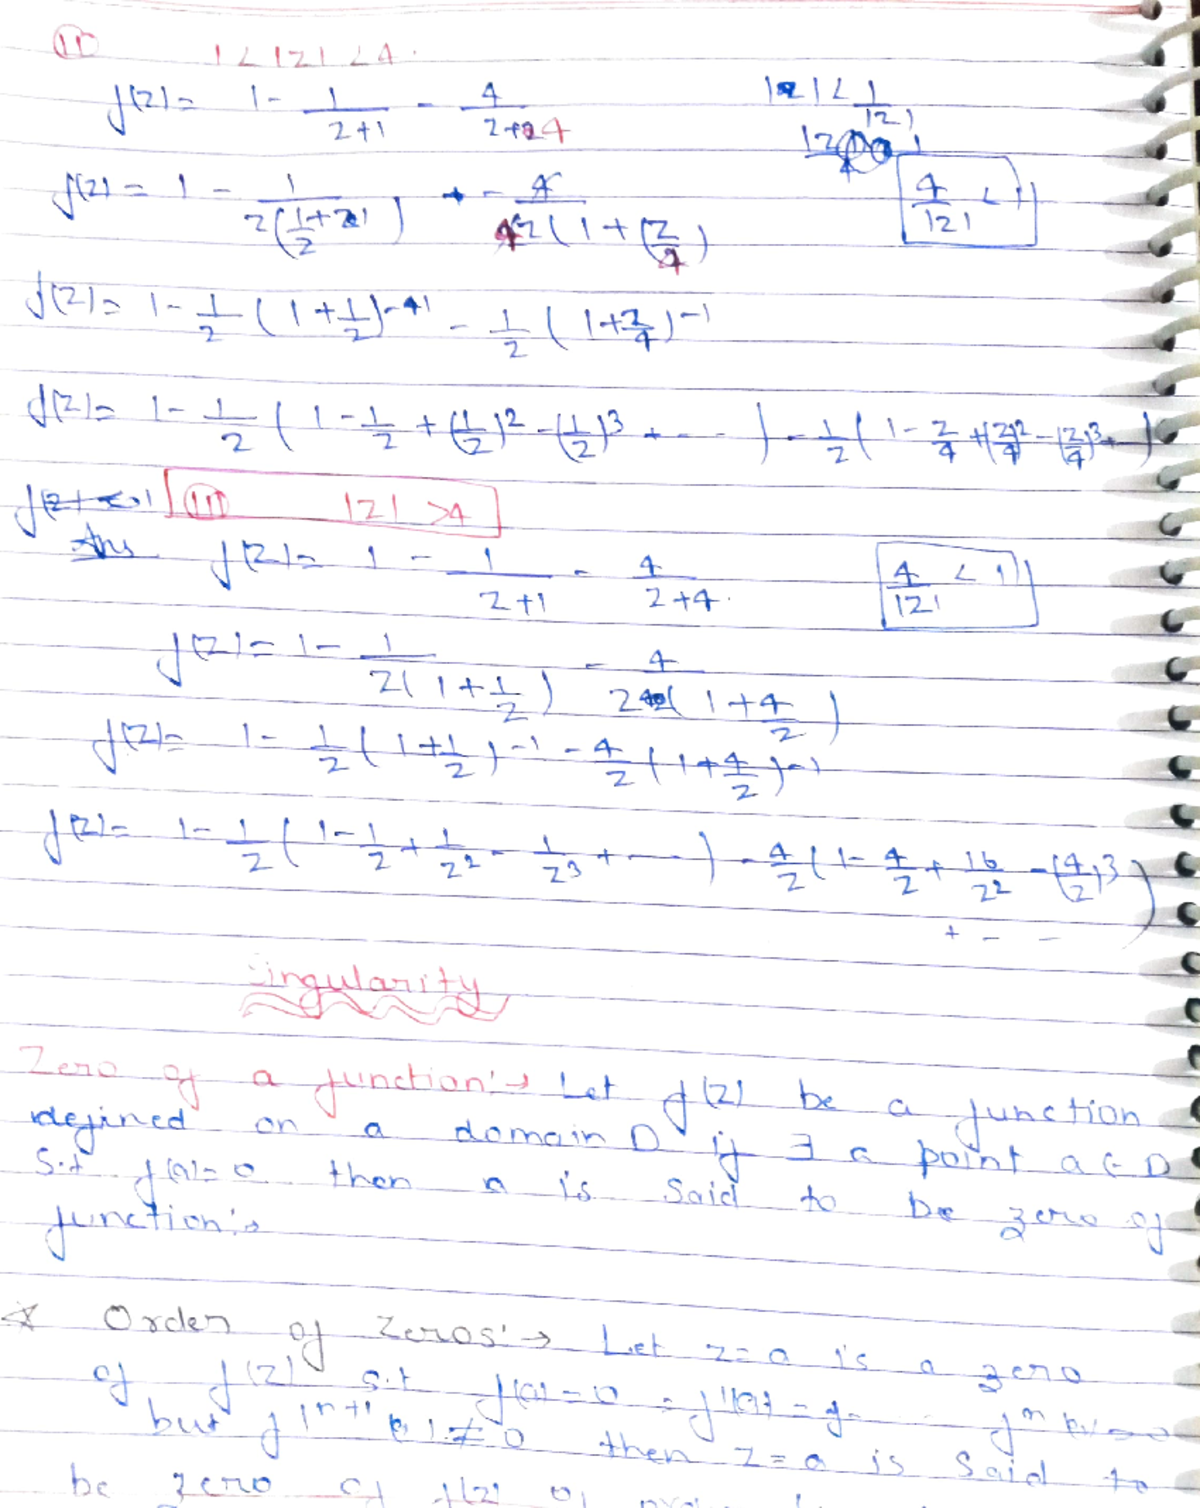 (ii) 1 < |z| < 4.
f(z) = 1 - 1/(z+1) - 4/(z+4)
|z| < 1/|z|
f(z) = 1 - 1/(z(1/z+1)) - 4/(4(1+(z/4))
4/|z| < 1
f(z) = 1 - 1/z (1+1/z)^-1 - 1/z (1+z/4)^-1
f(z) = 1 - 1/z (1 - 1/z + (1/z)^2 - (1/z)^3 + ---) - 1/z (1 - z/4 + (z/4)^2 - (z/4)^3 + )
(iii) |z| > 4
Ans f(z) = 1 - 1/(z+1) - 4/(z+4).
4/|z| < 1
f(z) = 1 - 1/(z(1+1/z)) - 4/(z(1+4/z))
f(z) = 1 - 1/z (1+1/z)^-1 - 4/z (1+4/z)^-1
f(z) = 1 - 1/z (1 - 1/z + 1/z^2 - 1/z^3 + ---) - 4/z (1 - 4/z + 16/z^2 - (4/z)^3
+ - - )
Singularity
Zero of a function:→ Let f(z) be a function
defined on a domain D if ∃ a point a ∈ D
s.t f(a)=0 then a is said to be zero of
function:→
* Order of zeros:→ Let z=a is a zero
of f(z) s.t f(a)=0 = f'(a) = --- f^n =0
but f^(n+1) (a) ≠ 0 then z=a is said to
be zero of f(z) of